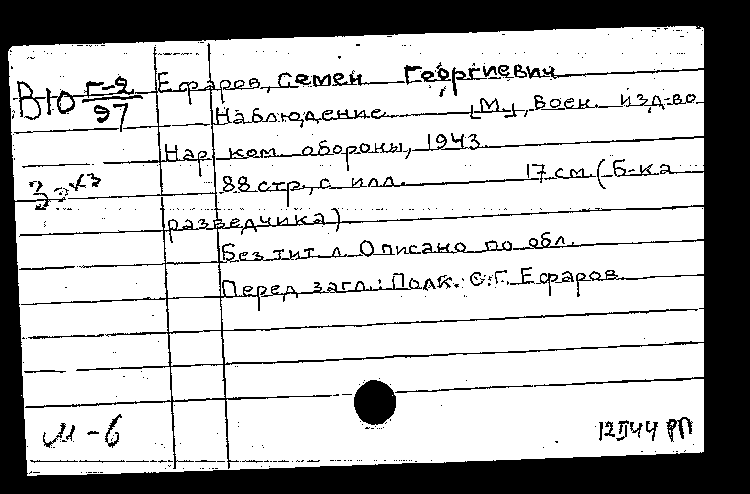 В10 Г-2/97
Ефаров, Семен Георгиевич
Наблюдение. [М.], Воен. изд-во
Нар. ком. обороны, 1943.
88 стр., с илл. 17 см. (Б-ка
разведчика)
Без тит. л. Описано по обл.
Перед загл.: Полк. С.Г. Ефаров.
М-6
12 II 44 РП